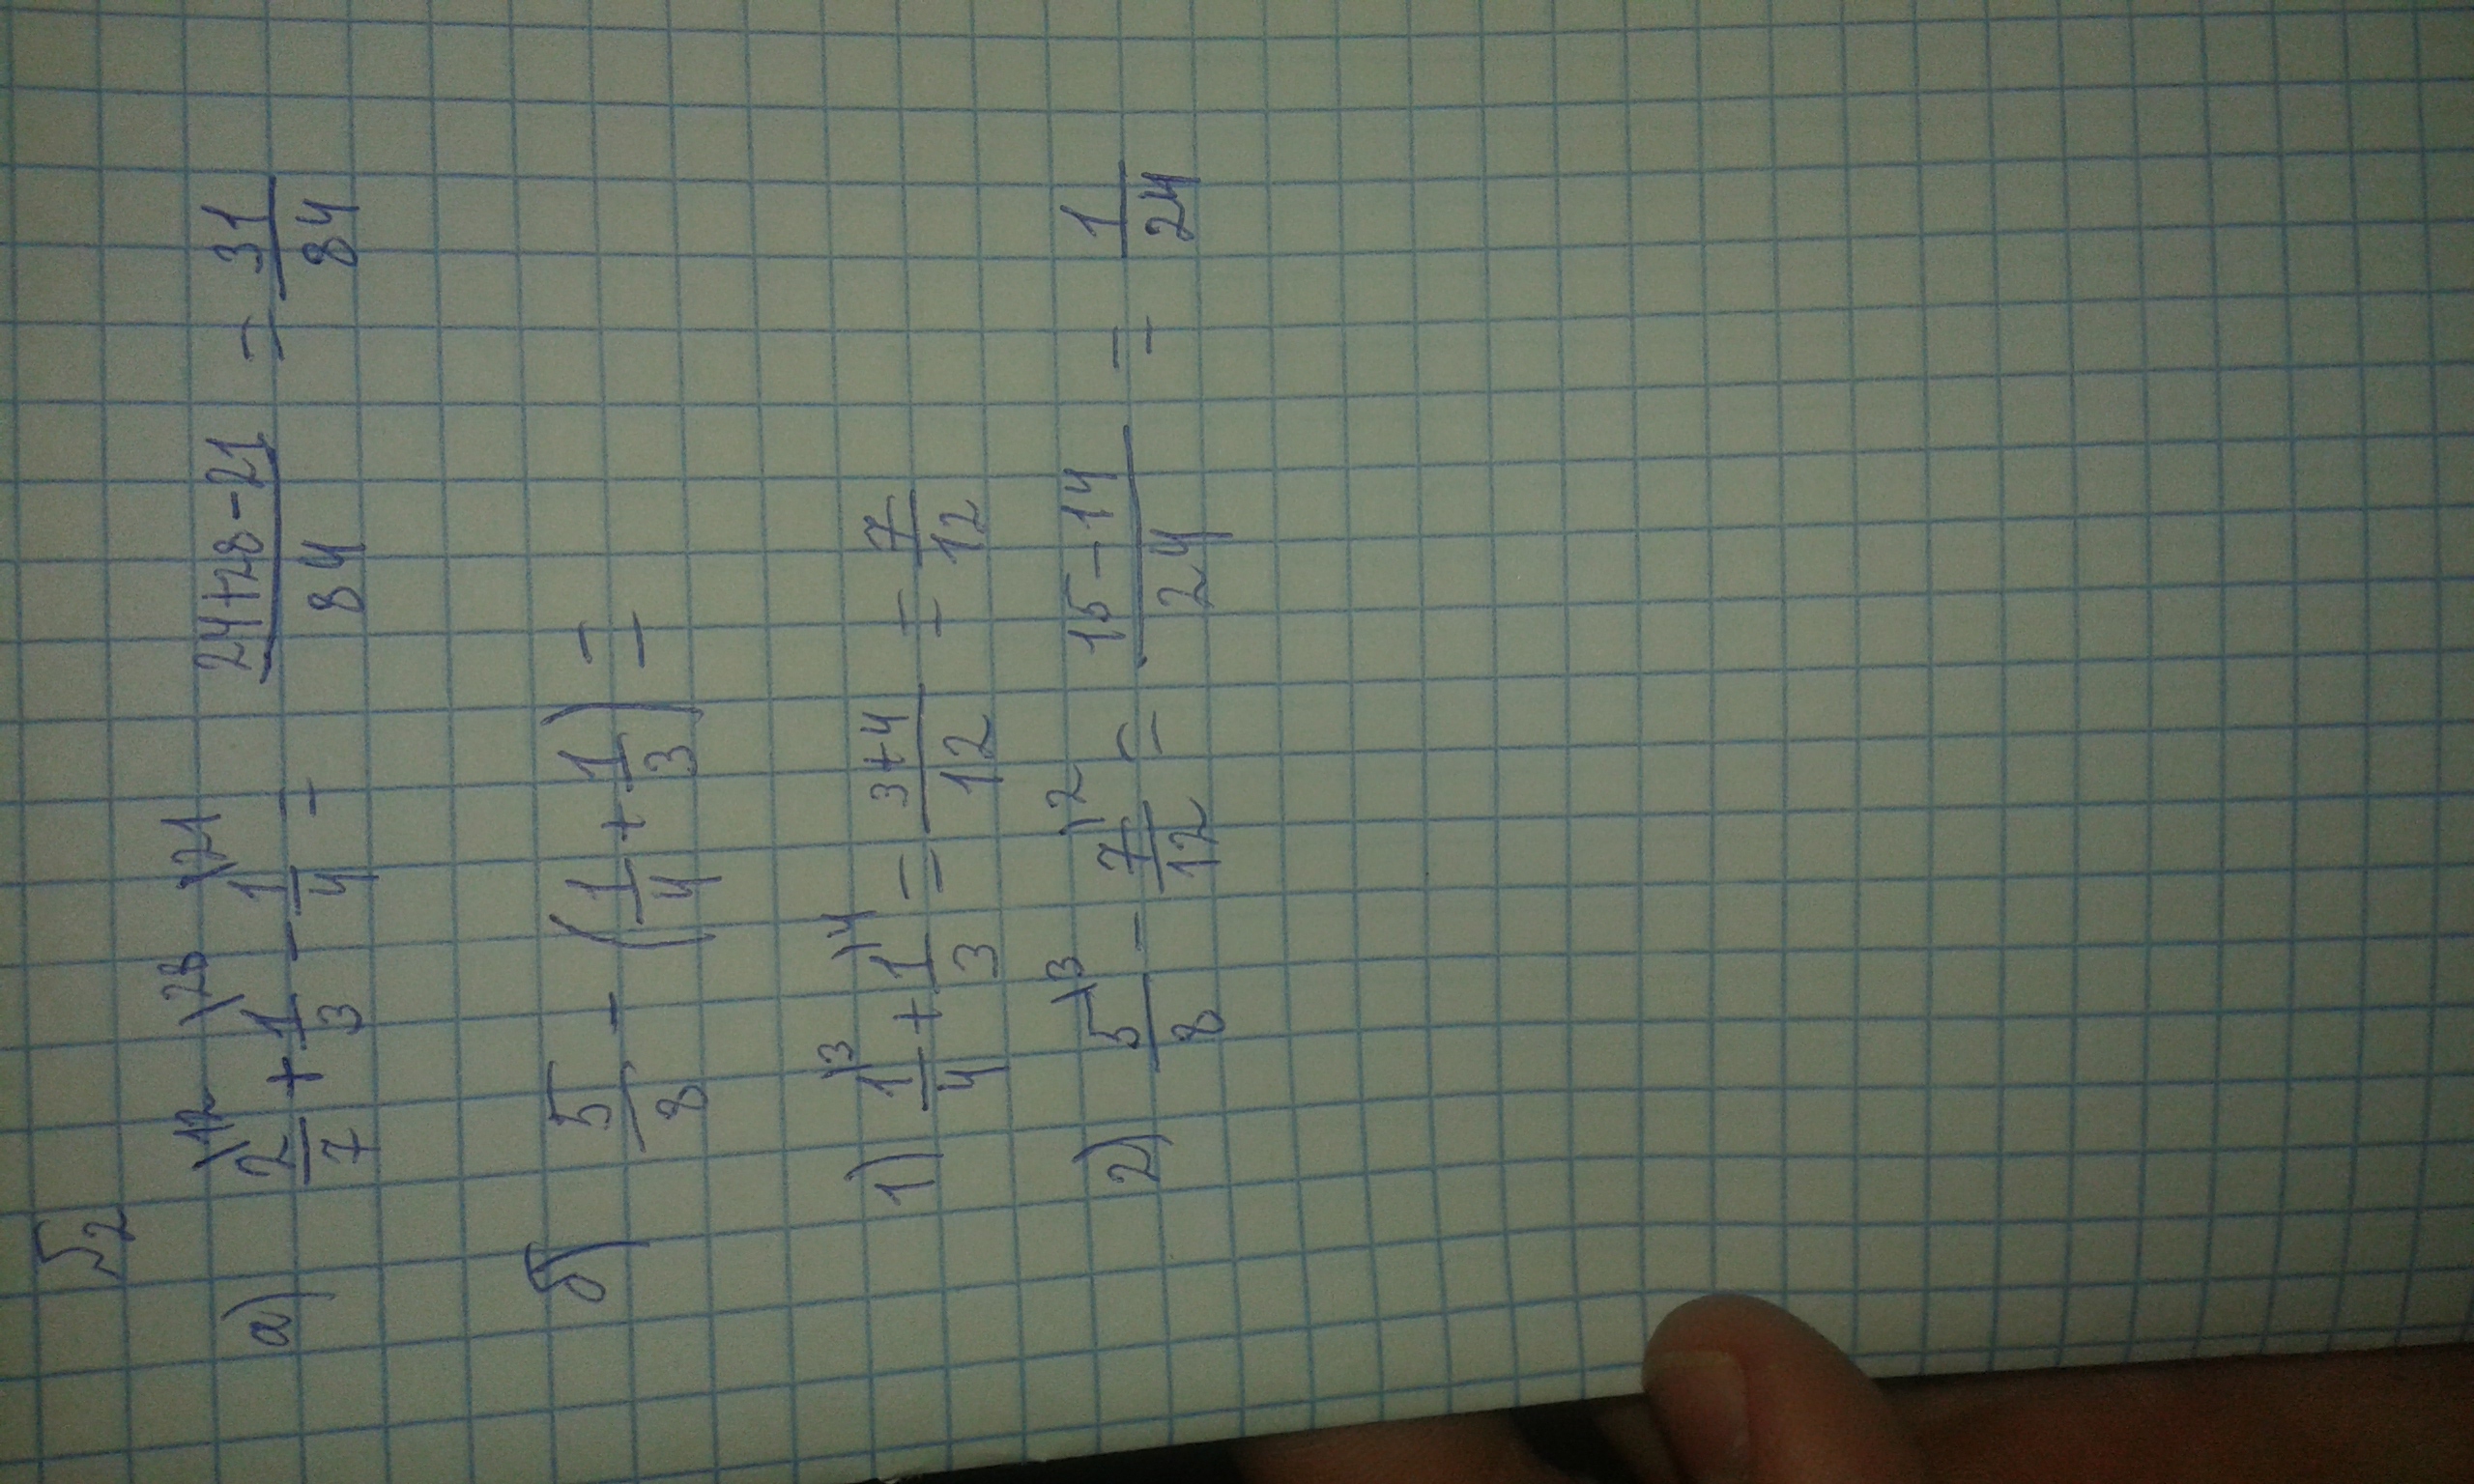 №2
а) 2/7 \12 + 1/3 \28 - 1/4 \21 = (24+28-21)/84 = 31/84
б) 5/8 - (1/4 + 1/3) =
1) 1/4 \3 + 1/3 \4 = (3+4)/12 = 7/12
2) 5/8 \3 - 7/12 \2 = (15-14)/24 = 1/24